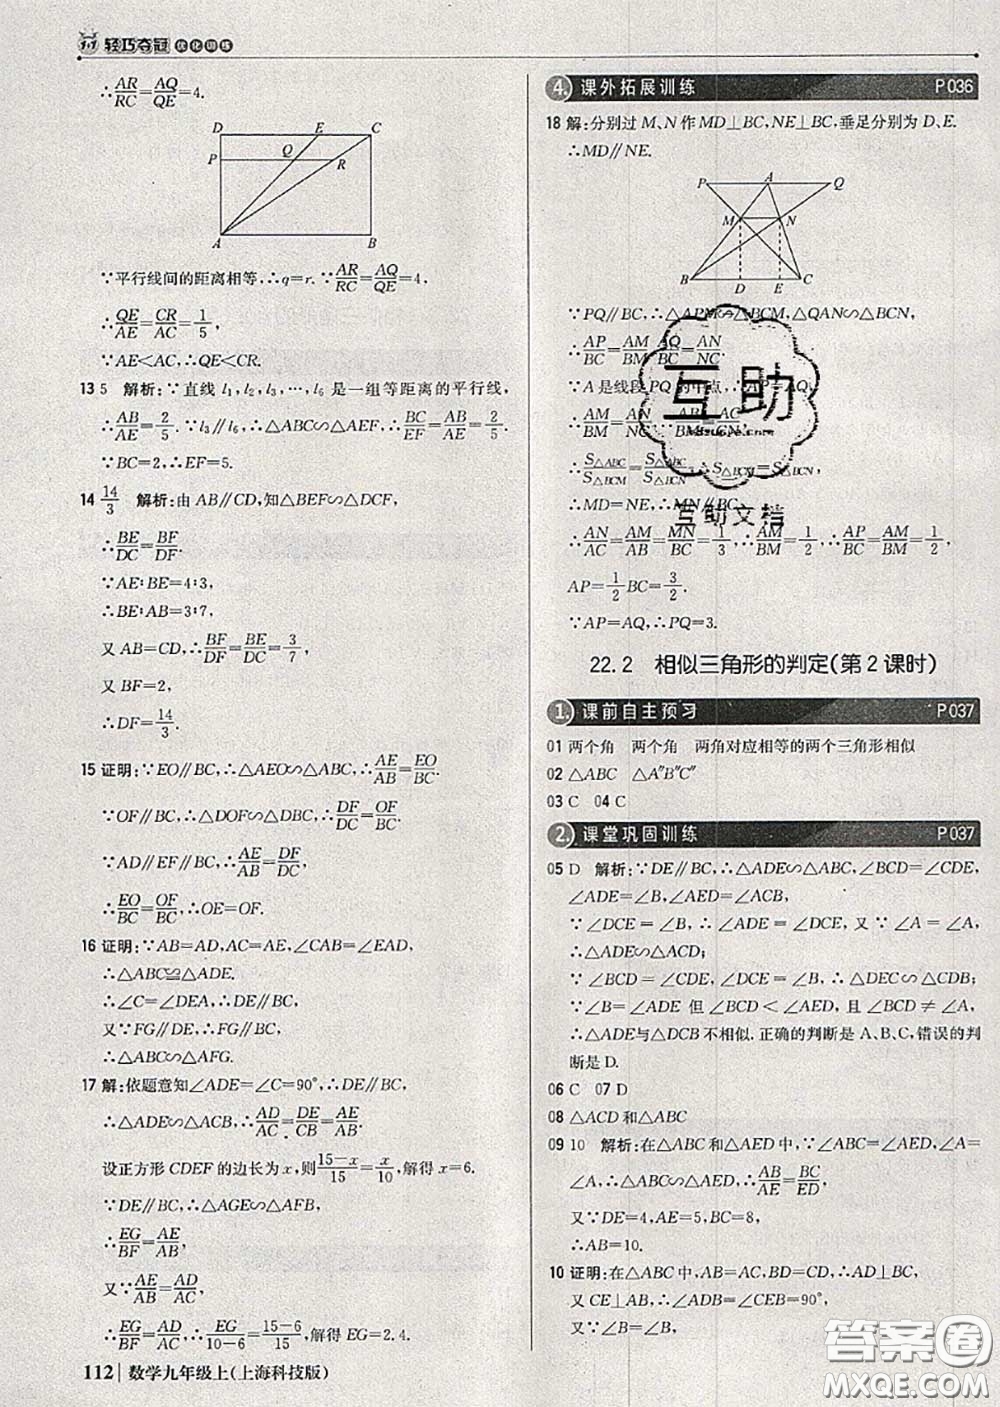 1+1 轻巧夺冠 优化训练
∴AR/RC=AQ/QE=4.
D E C
P Q R
A B
∵平行线间的距离相等,∴q=r.∵AR/RC=AQ/QE=4,
∴QE/AE=CR/AC=1/5,
∵AE<AC,∴QE<CR.
13 5 解析:∵直线 l₁,l₂,l₃,…,l₆ 是一组等距离的平行线,
∴AB/AE=2/5.∵l₃∥l₆,∴△ABC∽△AEF,∴BC/EF=AB/AE=2/5.
∵BC=2,∴EF=5.
14 14/3 解析:由 AB∥CD,知△BEF∽△DCF,
∴BE/DC=BF/DF.
∵AE∶BE=4∶3,
∴BE∶AB=3∶7,
又 AB=CD,∴BF/DF=BE/DC=3/7
又 BF=2,
∴DF=14/3.
15 证明:∵EO∥BC,∴△AEO∽△ABC,∴AE/AB=EO/BC.
∵OF∥BC,∴△DOF∽△DBC,∴DF/DC=OF/BC.
∵AD∥EF∥BC,∴AE/AB=DF/DC,
∴EO/BC=OF/BC,∴OE=OF.
16 证明:∵AB=AD,AC=AE,∠CAB=∠EAD,
∴△ABC≌△ADE.
∴∠C=∠DEA,∴DE∥BC.
又∵FG∥DE,∴FG∥BC,
∴△ABC∽△AFG.
17 解:依题意知∠ADE=∠C=90°,∴DE∥BC,
∴△ADE∽△ACB,∴AD/AC=DE/CB=AE/AB.
设正方形 CDEF 的边长为 x,则(15-x)/15=x/10,解得 x=6.
∵DE∥BC,∴△AEG∽△AFB,
∴EG/BF=AE/AB,
又∵AE/AB=AD/AC,
∴EG/BF=AD/AC,∴EG/(10-6)=(15-6)/15,解得 EG=2.4.
112 数学九年级上(上海科技版)
4. 课外拓展训练 P036
18 解:分别过 M、N 作 MD⊥BC,NE⊥BC,垂足分别为 D、E.
∴MD∥NE.
P A Q
M N
B D E C
∵PQ∥BC,∴△APM∽△BCM,△QAN∽△BCN,
∴AP/BC=AM/BM,AQ/BC=AN/NC.
∵A 是线段 PQ 的中点,∴AP=AQ,
∴AM/BM=AN/NC,
∴S△ABC/S△BCM=S△ABC/S△BCN,∴S△BCM=S△BCN,
∴MD=NE,∴MN∥BC,
∴AN/AC=AM/AB=MN/BC=1/3,∴AM/BM=1/2,∴AP/BC=AM/BM=1/2,
AP=1/2BC=3/2.
∵AP=AQ,∴PQ=3.
22.2 相似三角形的判定(第 2 课时)
1. 课前自主预习 P037
01 两个角 两角 两角对应相等的两个三角形相似
02 △ABC △A″B″C″
03 C 04 C
2. 课堂巩固训练 P037
05 D 解析:∵DE∥BC,∴△ADE∽△ABC,∠BCD=∠CDE,
∠ADE=∠B,∠AED=∠ACB,
∵∠DCE=∠B,∴∠ADE=∠DCE,又∵∠A=∠A,
∴△ADE∽△ACD;
∵∠BCD=∠CDE,∠DCE=∠B,∴△DEC∽△CDB;
∵∠B=∠ADE 但∠BCD<∠AED,且∠BCD≠∠A,
∴△ADE与△DCB不相似.正确的判断是A、B、C,错误的判
断是D.
06 C 07 D
08 △ACD 和△ABC
09 10 解析:在△ABC 和△AED 中,∵∠ABC=∠AED,∠A=
∠A,∴△ABC∽△AED,∴AB/AE=BC/ED,
又∵DE=4,AE=5,BC=8,
∴AB=10.
10 证明:在△ABC 中,AB=AC,BD=CD,∴AD⊥BC,
又 CE⊥AB,∴∠ADB=∠CEB=90°,
又
互助
互助文档
答案圈
MXQE.COM